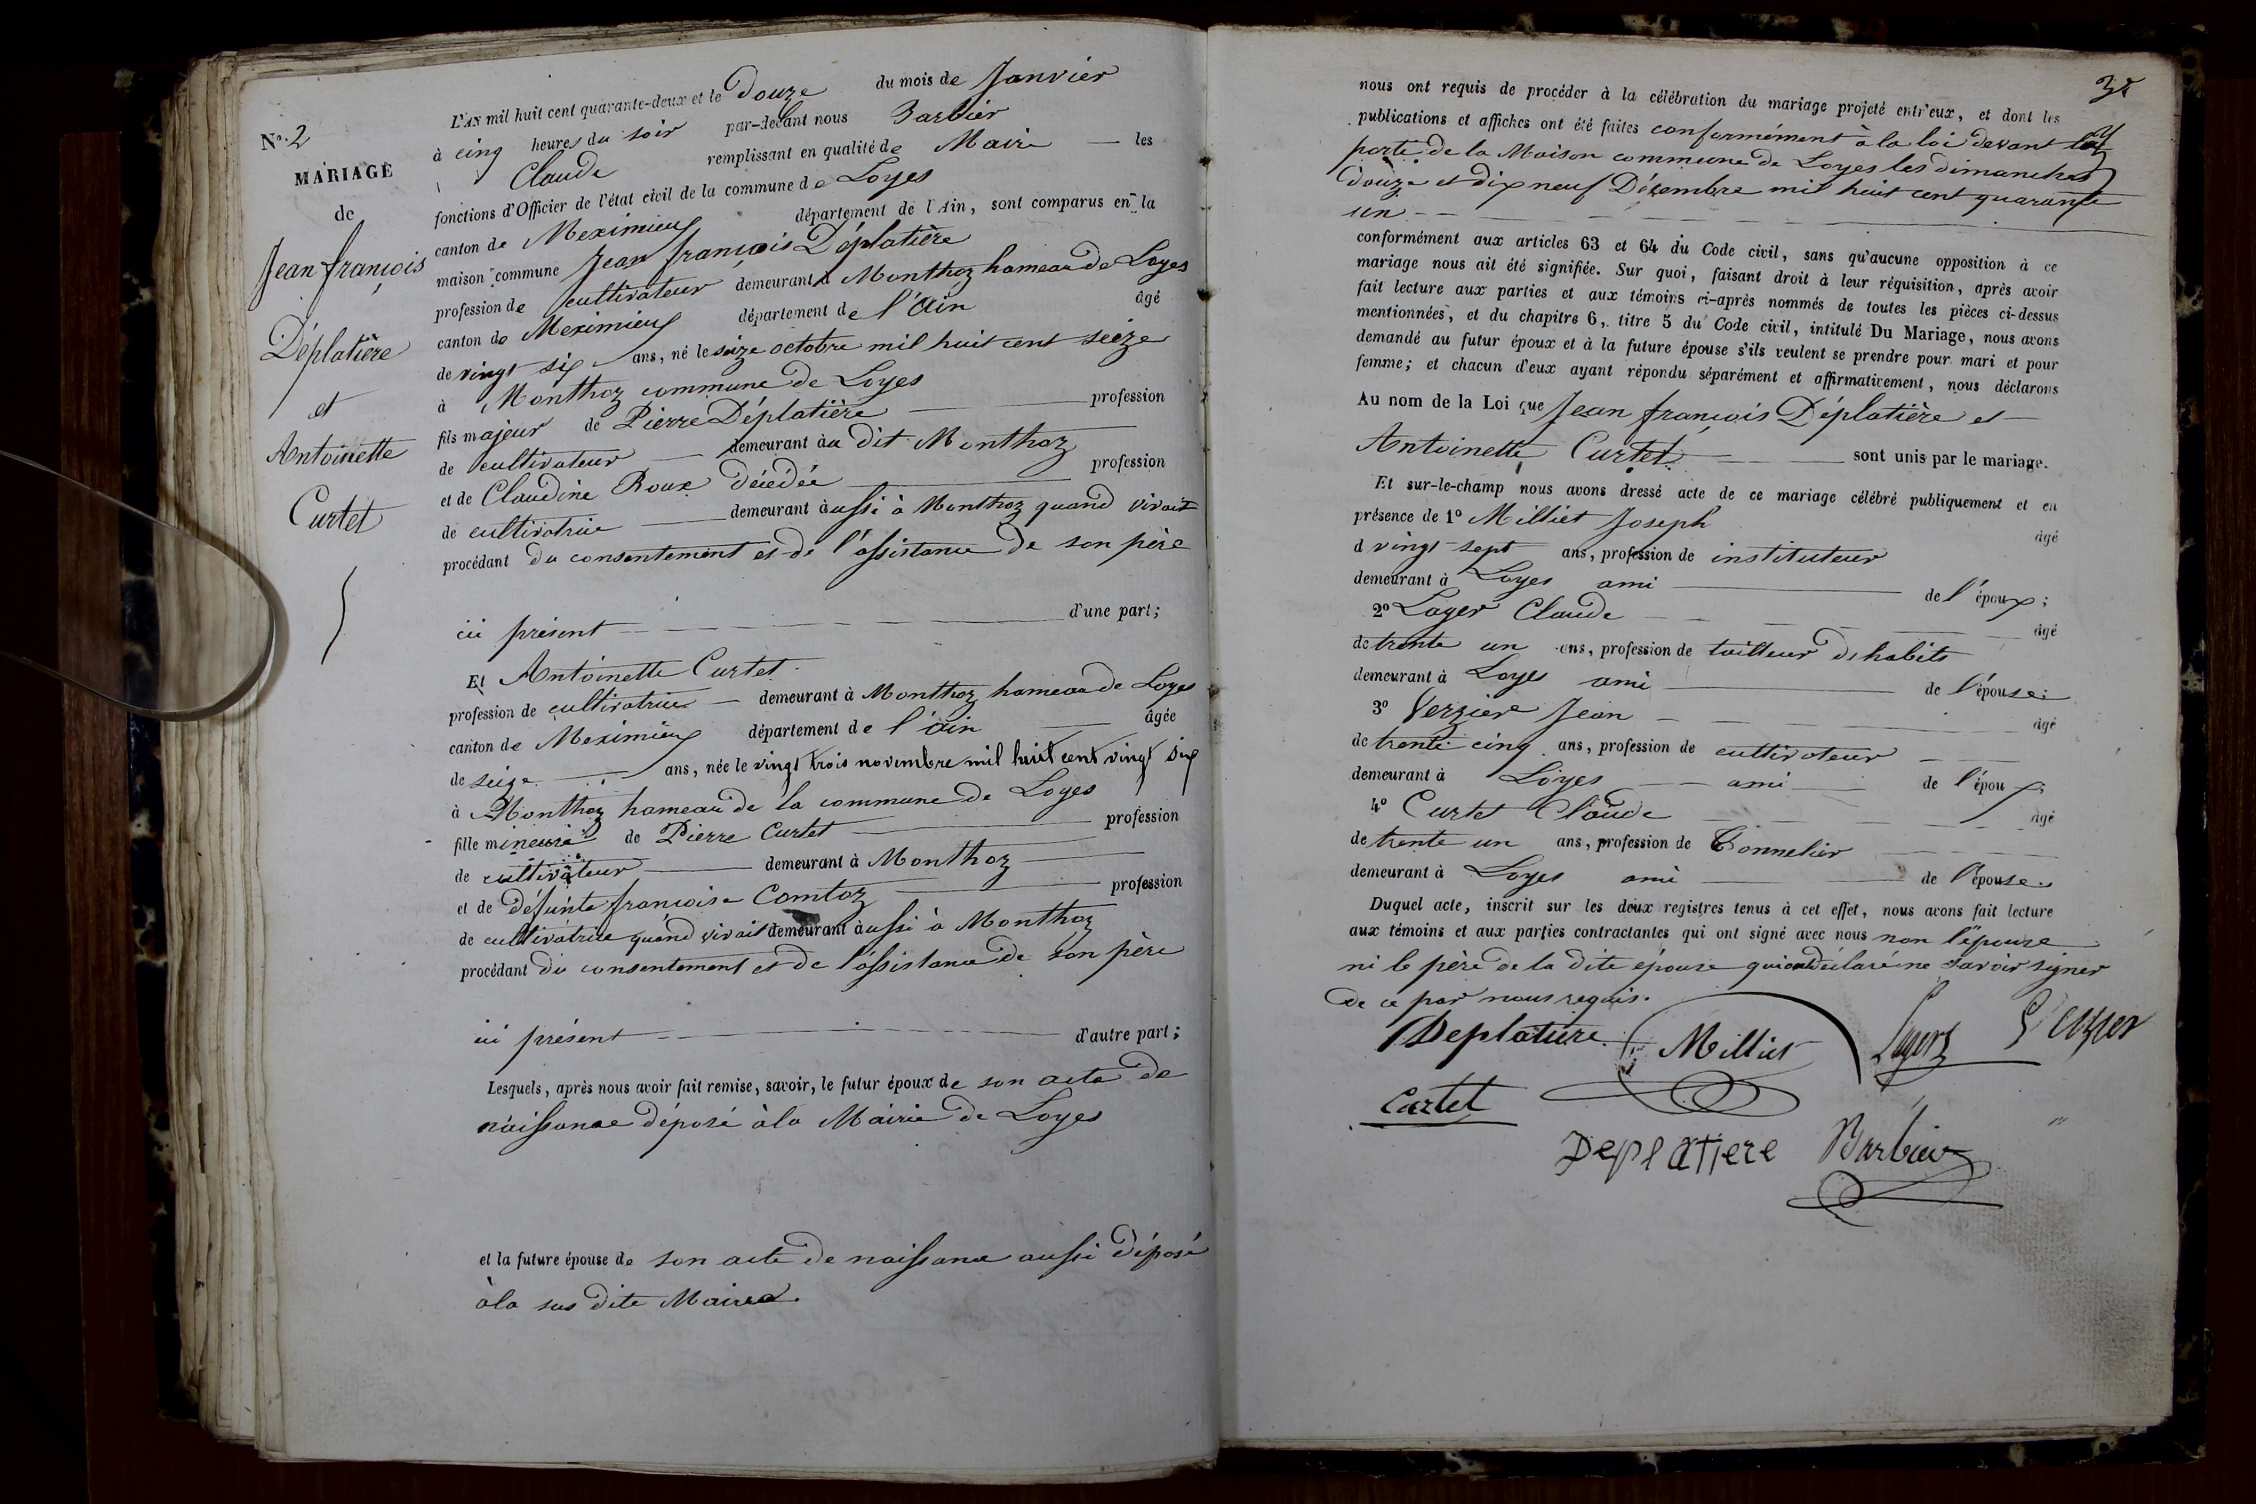 N° 2
MARIAGE
de
Jean françois
Déplatière
et
Antoinette
Curtet
L'AN mil huit cent quarante-deux et le Douze du mois de Janvier
à cinq heures du soir par-devant nous Barbier
Claude remplissant en qualité de Maire les
fonctions d'Officier de l'état civil de la commune de Loyes
canton de Meximieux département de l'Ain, sont comparus en la
maison commune Jean françois Déplatière
profession de cultivateur demeurant à Monthoz hameau de Loyes
canton de Meximieux département de l'ain âgé
de vingt six ans, né le seize octobre mil huit cent seize
à Monthoz commune de Loyes
fils majeur de Pierre Déplatière profession
de cultivateur demeurant au dit Monthoz
et de Claudine Roux décédée profession
de cultivatrice demeurant aussi à Monthoz quand vivait
procédant du consentement et de l'assistance de son père
ici présent d'une part;
Et Antoinette Curtet
profession de cultivatrice demeurant à Monthoz hameau de Loyes
canton de Meximieux département de l'ain âgée
de seize ans, née le vingt trois novembre mil huit cent vingt six
à Monthoz hameau de la commune de Loyes
fille mineure de Pierre Curtet profession
de cultivateur demeurant à Monthoz
et de défunte françoise Comtoz profession
de cultivatrice quand vivait demeurant aussi à Monthoz
procédant du consentement et de l'assistance de son père
ici présent d'autre part;
Lesquels, après nous avoir fait remise, savoir, le futur époux de son acte de
naissance déposé à la Mairie de Loyes
et la future épouse de son acte de naissance aussi déposé
à la sus dite Mairie.
nous ont requis de procéder à la célébration du mariage projeté entr'eux, et dont les
publications et affiches ont été faites conformément à la loi devant la
porte de la Maison commune de Loyes les dimanches
Douze et dix neuf Décembre mil huit cent quarante
un
conformément aux articles 63 et 64 du Code civil, sans qu'aucune opposition à ce
mariage nous ait été signifiée. Sur quoi, faisant droit à leur réquisition, après avoir
fait lecture aux parties et aux témoins ci-après nommés de toutes les pièces ci-dessus
mentionnées, et du chapitre 6, titre 5 du Code civil, intitulé Du Mariage, nous avons
demandé au futur époux et à la future épouse s'ils veulent se prendre pour mari et pour
femme; et chacun d'eux ayant répondu séparément et affirmativement, nous déclarons
Au nom de la Loi que Jean françois Déplatière et
Antoinette Curtet sont unis par le mariage.
Et sur-le-champ nous avons dressé acte de ce mariage célébré publiquement et en
présence de 1° Milliet Joseph âgé
d vingt sept ans, profession de instituteur
demeurant à Loyes ami de l'époux;
2° Loyer Claude âgé
de trente un ans, profession de tailleur d'habits
demeurant à Loyes ami de l'épouse;
3° Verzier Jean âgé
de trente cinq ans, profession de cultivateur
demeurant à Loyes ami de l'époux;
4° Curtet Claude âgé
de trente un ans, profession de Tonnelier
demeurant à Loyes ami de l'épouse.
Duquel acte, inscrit sur les deux registres tenus à cet effet, nous avons fait lecture
aux témoins et aux parties contractantes qui ont signé avec nous non l'épouse
ni le père de la dite épouse qui ont déclaré ne savoir signer
de ce par nous requis.
Deplatiere Milliet Verzier
Curtet
Deplatiere Barbier